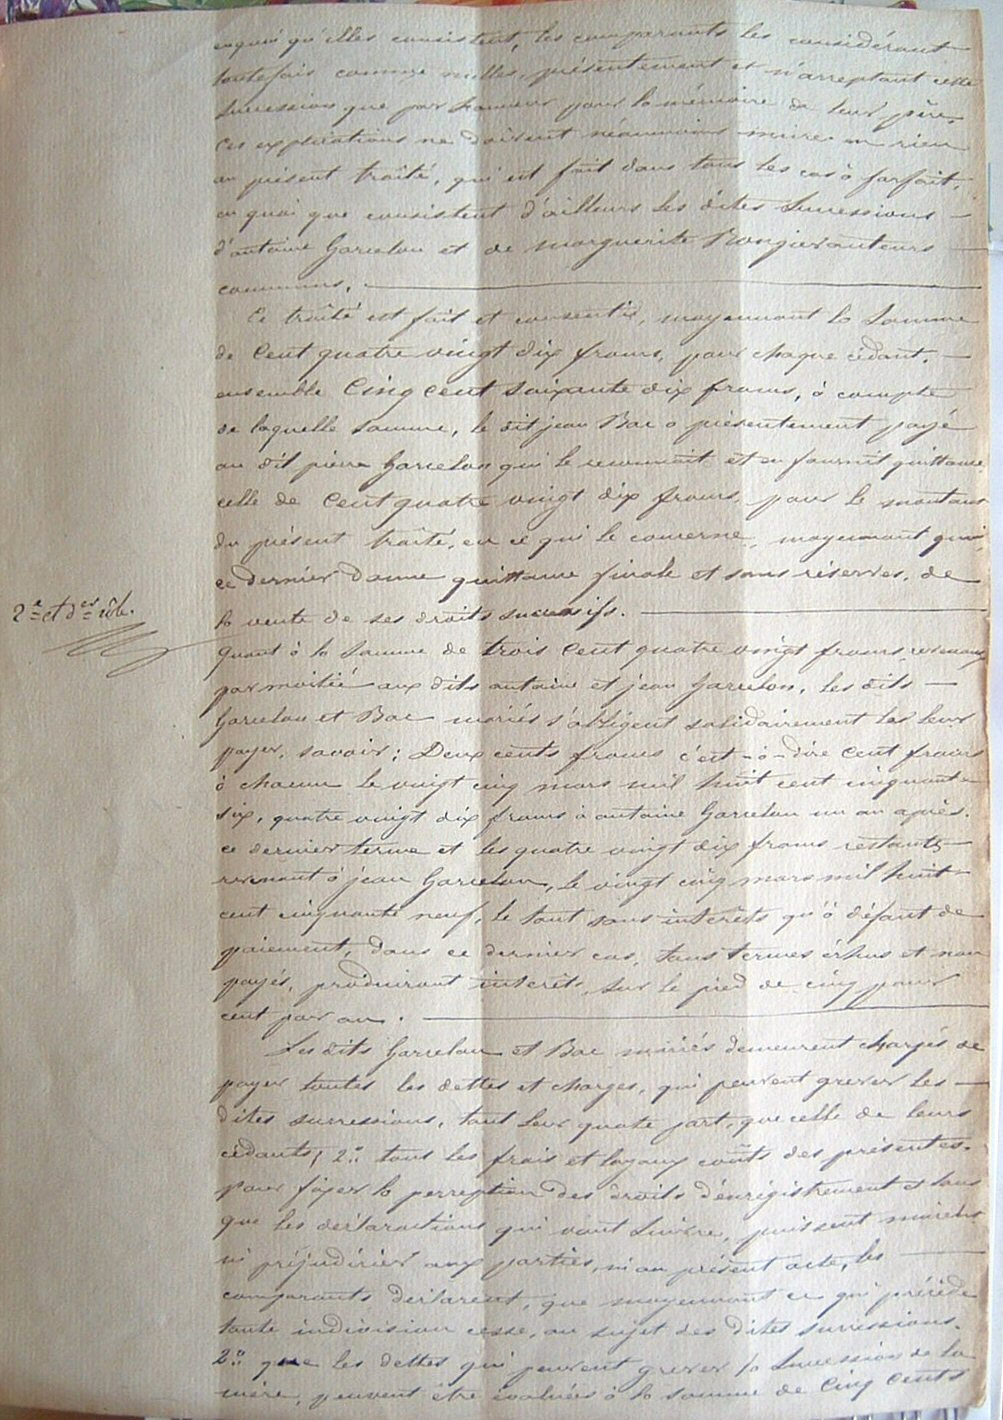 enquoi qu'elles consistent, les comparants les considérant
toutefois comme nulles, présentement et n'acceptant cette
succession que par honneur pour la mémoire de leur père.
Ces explications ne doivent néanmoins nuire en rien
au présent traité, qui est fait dans tous les cas à forfait,
en quoi que consistent d'ailleurs les dites successions
d'antoine Garcelon et de marguerite Rongier auteurs
communs.
Ce traité est fait et consenti, moyennant la somme
de Cent quatre vingt dix francs, pour chaque cédant.
ensemble Cinq cent soixante dix francs, à compte
de laquelle somme, le dit jean Bac a présentement payé
au dit pierre Garcelon qui le reconnait et en fournit quittance
celle de Cent quatre vingt dix francs, pour le montant
du présent traité, en ce qui le concerne, moyennant quoi
ce dernier donne quittance finale et sans réserves, de
la vente de ses droits successifs.
2e et der rôle.
Quant à la somme de trois Cent quatre vingt francs, revenant
par moitié aux dits antoine et jean Garcelon, les dits
Garcelon et Bac mariés s'obligent solidairement les leur
payer, savoir : Deux cents francs c'est-à-dire Cent francs
à chacun le vingt cinq mars mil huit cent cinquante
six, quatre vingt dix francs à antoine Garcelon un an après.
ce dernier terme et les quatre vingt dix francs restants
revenant à jean Garcelon, le vingt cinq mars mil huit
cent cinquante neuf, le tout sans intérêts qu'à défaut de
paiement, dans ce dernier cas, tous termes échus et non
payés, produiront intérêts, sur le pied de cinq pour
cent par an.
Les dits Garcelon et Bac mariés demeurent chargés de
payer toutes les dettes et charges, qui peuvent grever les
dites successions, tant leur quote part, que celle de leurs
cédants; 2.° tous les frais et loyaux coûts des présentes.
Pour fixer la perception des droits d'enrégistrement et sans
que les déclarations qui vont suivre, puissent nuire
ni préjudicier aux parties, ni au présent acte, les
comparants déclarent, que moyennant ce qui précède
toute indivision cesse, au sujet des dites successions.
2.° que les dettes qui peuvent grever la succession de la
mère, peuvent être évaluées à la somme de Cinq Cents